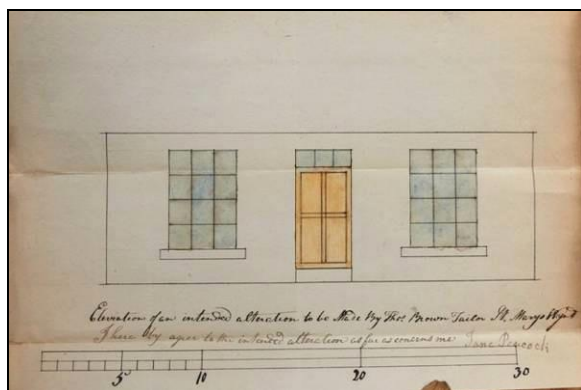 Elevation of an intended alteration to be Made By Thos. Brown Tailor St. Marys Wynd
I here by agree to the intended alteration as far as concerns me Jane Peacock
5 10 20 30